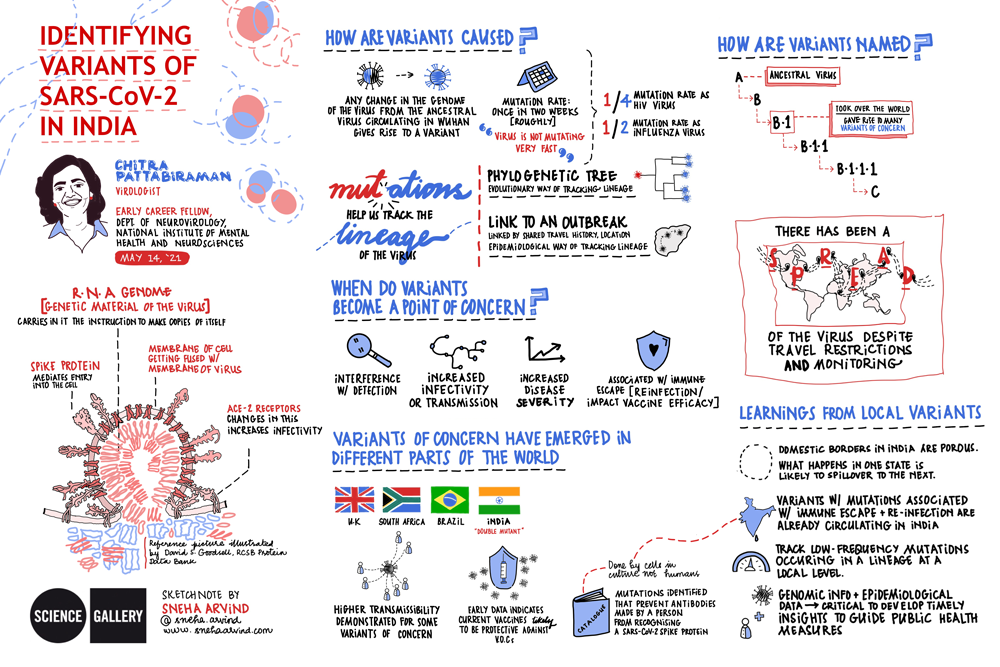 IDENTIFYING
VARIANTS OF
SARS-CoV-2
IN INDIA
CHITRA
PATTABIRAMAN
VIROLOGIST
EARLY CAREER FELLOW,
DEPT. OF NEUROVIROLOGY,
NATIONAL INSTITUTE OF MENTAL
HEALTH AND NEUROSCIENCES
MAY 14, '21
R·N·A GENOME
[GENETIC MATERIAL OF THE VIRUS]
CARRIES IN IT THE INSTRUCTION TO MAKE COPIES OF ITSELF
SPIKE PROTEIN
MEDIATES ENTRY
INTO THE CELL
MEMBRANE OF CELL
GETTING FUSED W/
MEMBRANE OF VIRUS
ACE-2 RECEPTORS
CHANGES IN THIS
INCREASES INFECTIVITY
Reference picture illustrated
by David S. Goodsell, RCSB Protein
Data Bank
SCIENCE
GALLERY
SKETCHNOTE BY
SNEHA ARVIND
@ sneha.arvind
www.snehaarvind.com
HOW ARE VARIANTS CAUSED?
ANY CHANGE IN THE GENOME
OF THE VIRUS FROM THE ANCESTRAL
VIRUS CIRCULATING IN WUHAN
GIVES RISE TO A VARIANT
MUTATION RATE:
ONCE IN TWO WEEKS
[ROUGHLY]
"VIRUS IS NOT MUTATING
VERY FAST"
1/4 MUTATION RATE AS
HIV VIRUS
1/2 MUTATION RATE AS
INFLUENZA VIRUS
mutations
HELP US TRACK THE
lineage
OF THE VIRUS
PHYLOGENETIC TREE
EVOLUTIONARY WAY OF TRACKING LINEAGE
LINK TO AN OUTBREAK
LINKED BY SHARED TRAVEL HISTORY, LOCATION
EPIDEMIOLOGICAL WAY OF TRACKING LINEAGE
WHEN DO VARIANTS
BECOME A POINT OF CONCERN?
INTERFERENCE
W/ DETECTION
INCREASED
INFECTIVITY
OR TRANSMISSION
INCREASED
DISEASE
SEVERITY
ASSOCIATED W/ IMMUNE
ESCAPE [REINFECTION/
IMPACT VACCINE EFFICACY]
VARIANTS OF CONCERN HAVE EMERGED IN
DIFFERENT PARTS OF THE WORLD
U·K
SOUTH AFRICA
BRAZIL
INDIA
"DOUBLE MUTANT"
HIGHER TRANSMISSIBILITY
DEMONSTRATED FOR SOME
VARIANTS OF CONCERN
EARLY DATA INDICATES
CURRENT VACCINES likely
TO BE PROTECTIVE AGAINST
V.O.Cs
Done by cells in
culture not humans
CATALOGUE
MUTATIONS IDENTIFIED
THAT PREVENT ANTIBODIES
MADE BY A PERSON
FROM RECOGNISING
A SARS-COV-2 SPIKE PROTEIN
HOW ARE VARIANTS NAMED?
A
ANCESTRAL VIRUS
B
B·1
TOOK OVER THE WORLD
GAVE RISE TO MANY
VARIANTS OF CONCERN
B·1·1
B·1·1·1
C
THERE HAS BEEN A
SPREAD
OF THE VIRUS DESPITE
TRAVEL RESTRICTIONS
AND MONITORING
LEARNINGS FROM LOCAL VARIANTS
DOMESTIC BORDERS IN INDIA ARE POROUS.
WHAT HAPPENS IN ONE STATE IS
LIKELY TO SPILLOVER TO THE NEXT.
VARIANTS W/ MUTATIONS ASSOCIATED
W/ IMMUNE ESCAPE + RE-INFECTION ARE
ALREADY CIRCULATING IN INDIA
TRACK LOW-FREQUENCY MUTATIONS
OCCURING IN A LINEAGE AT A
LOCAL LEVEL.
GENOMIC INFO + EPIDEMIOLOGICAL
DATA → CRITICAL TO DEVELOP TIMELY
INSIGHTS TO GUIDE PUBLIC HEALTH
MEASURES